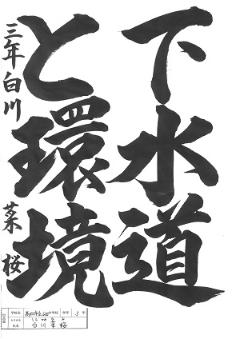 下水道
と環境
三年白川菜桜